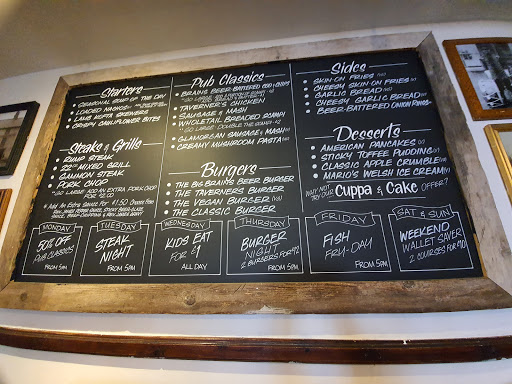 Starters
SEASONAL SOUP OF THE DAY
LOADED NACHOS
LAMB KOFTA SKEWERS
CRISPY CAULIFLOWER BITES
Steaks & Grills
RUMP STEAK
22oz MIXED GRILL
GAMMON STEAK
PORK CHOP
"GO LARGE" ADD AN EXTRA PORK CHOP
FOR £2.00
* Add An Extra Sauce For £1.50
Pub Classics
BRAINS BEER-BATTERED COD & CHIPS
TAVERNER'S CHICKEN
SAUSAGE & MASH
WHOLETAIL BREADED SCAMPI
"GO LARGE" DOUBLE THE SCAMPI + £2
GLAMORGAN SAUSAGE & MASH (V)
CREAMY MUSHROOM PASTA (V)
Burgers
THE BIG BRAINS BEER BURGER
THE TAVERNERS BURGER
THE VEGAN BURGER
THE CLASSIC BURGER
Sides
SKIN-ON FRIES
CHEESY SKIN-ON FRIES
GARLIC BREAD
CHEESY GARLIC BREAD
BEER-BATTERED ONION RINGS
Desserts
AMERICAN PANCAKES
STICKY TOFFEE PUDDING
CLASSIC APPLE CRUMBLE
MARIO'S WELSH ICE CREAM
WHY NOT
TRY OUR CUPPA & CAKE OFFER?
MONDAY
50% OFF
PUB CLASSICS
FROM 5PM
TUESDAY
STEAK
NIGHT
FROM 5PM
WEDNESDAY
KIDS EAT
FOR £1
ALL DAY
THURSDAY
BURGER
NIGHT
2 BURGERS FOR £12
FROM 5PM
FRIDAY
FISH
FRY-DAY
SAT & SUN
WEEKEND
WALLET SAVER
2 COURSES FOR £10